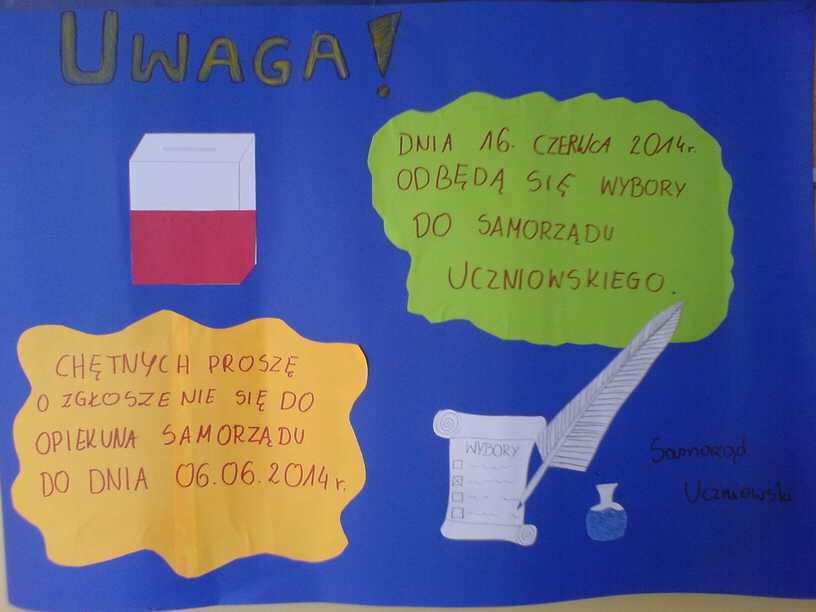 UWAGA!
DNIA 16. CZERWCA 2014r.
ODBĘDĄ SIĘ WYBORY
DO SAMORZĄDU
UCZNIOWSKIEGO.
CHĘTNYCH PROSZĘ
O ZGŁOSZENIE SIĘ DO
OPIEKUNA SAMORZĄDU
DO DNIA 06.06.2014r.
WYBORY
Samorząd
Uczniowski